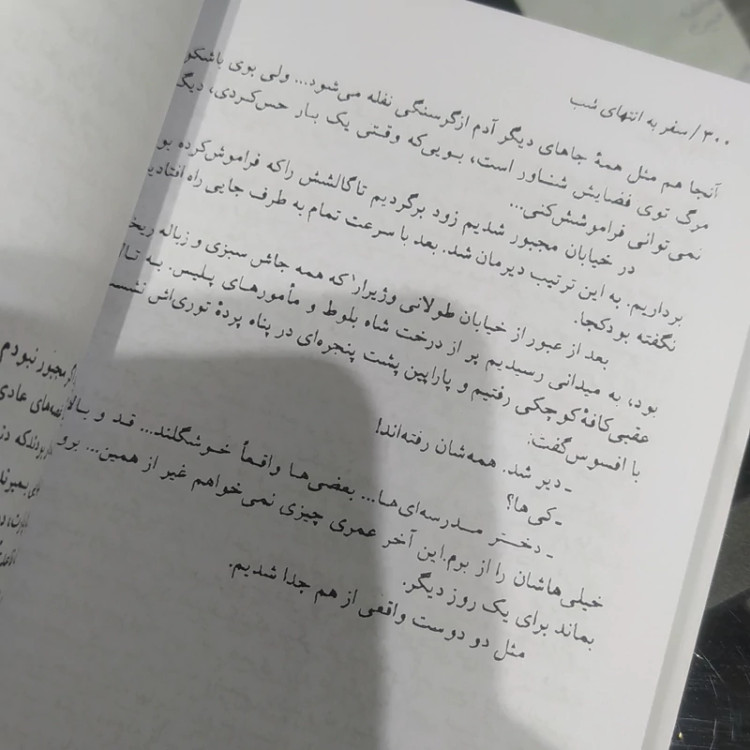 ۳۰۰/ سفر به انتهای شب
آنجا هم مثل همهٔ جاهای دیگر آدم ازگرسنگی نفله می‌شود... ولی بوی
مرگ توی فضایش شناور است، بویی‌که وقتی یک بار حس‌کردی، دیگ
نمی‌توانی فراموشش‌کنی...
در خیابان مجبور شدیم زود برگردیم تاگالشش راکه فراموش‌کرده بو
برداریم. به این ترتیب دیرمان شد. بعد با سرعت تمام به طرف جایی راه افتادیم
نگفته بودکجا.
بعد از عبور از خیابان طولانی وژیرار۱ که همه جاش سبزی و زباله ریخ
بود، به میدانی رسیدیم پر از درخت شاه بلوط و مأمورهای پلیس. به تالا
عقبی‌کافهٔ‌کوچکی رفتیم و پاراپین پشت پنجره‌ای در پناه پردهٔ توری‌اش نشس
با افسوس‌گفت:
ـ دیر شد. همه‌شان رفته‌اند!
ـ کی‌ها؟
ـ دختر مدرسه‌ای‌ها... بعضی‌ها واقعاً خوشگلند... قد و بالا
خیلی‌هاشان را از برم.این آخر عمری چیزی نمی‌خواهم غیر از همین... برو
بماند برای یک روز دیگر.
مثل دو دوست واقعی از هم جدا شدیم.
مجبور نبودم
های عادی
بودندکه